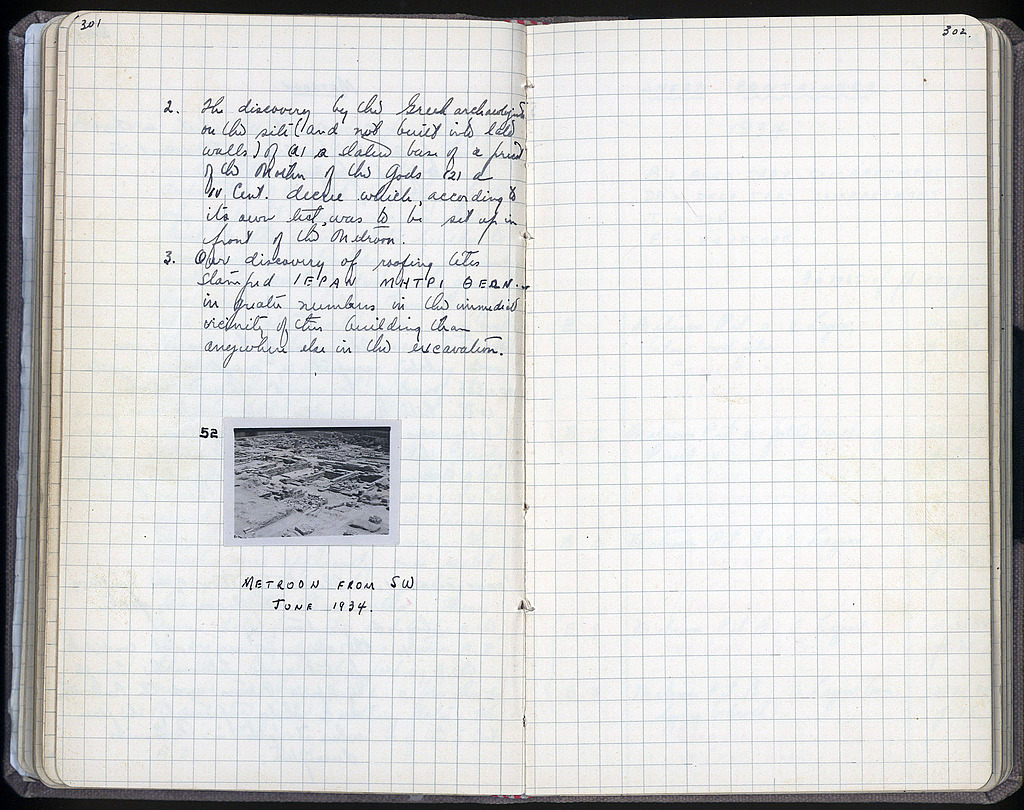 301
302.
2. The discovery by the Greek archaeologists
on the site (and not built into late
walls) of (1) a statue base of a priest
of the Mother of the Gods (2) a
Cent. decree which, according to
its own text, was to be set up in
front of the Metroon.
3. Our discovery of roofing tiles
stamped ΙΕΡΑΝ ΜΗΤΡΙ ΘΕΩΝ.
in greater numbers in the immediate
vicinity of this building than
anywhere else in the excavation.
52
METROON FROM SW
JUNE 1934.